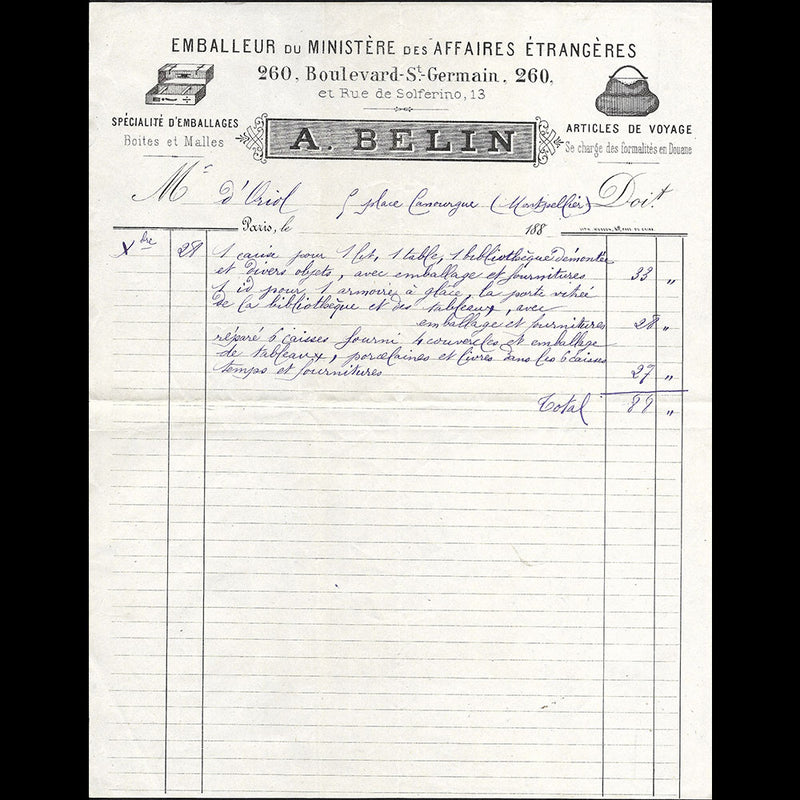 EMBALLEUR DU MINISTÈRE DES AFFAIRES ÉTRANGÈRES
260, Boulevard-St-Germain, 260,
et Rue de Solferino, 13
SPÉCIALITÉ D'EMBALLAGES
Boites et Malles
A. BELIN
ARTICLES DE VOYAGE
Se charge des formalités en Douane
Mr d'Oriol 5 place Canourgue (Montpellier) Doit
Paris, le 188
Xbre 29 1 caisse pour 1 lit, 1 table, 1 bibliothèque démontée
et divers objets, avec emballage et fournitures 33 "
1 id pour 1 armoire à glace, la porte vitrée
de la bibliothèque et des tableaux, avec
emballage et fournitures 28 "
réparé 6 caisses fourni 4 couvercles et emballage
de tableaux, porcelaines et livres dans les 6 caisses
temps et fournitures 27 "
Total 88 "